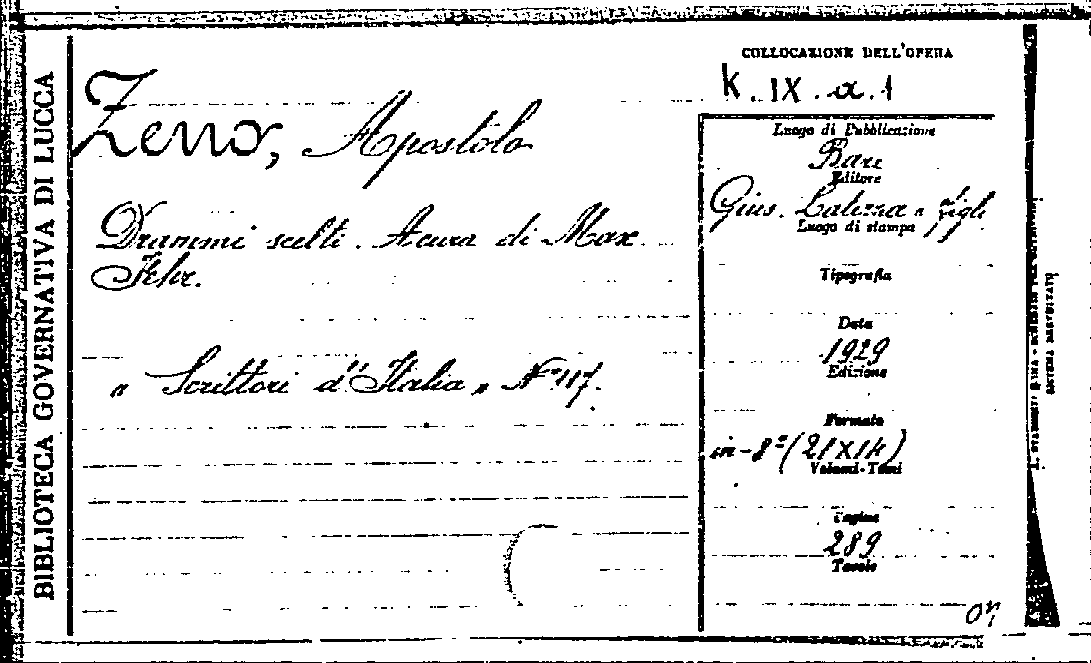 BIBLIOTECA GOVERNATIVA DI LUCCA
Zeno, Apostolo
Drammi scelti. A cura di Max
Fehr.
" Scrittori d'Italia " N° 117.
COLLOCAZIONE DELL'OPERA
K. IX. a. 1
Luogo di Pubblicazione
Bari
Editore
Gius. Laterza e figli
Luogo di stampa
Tipografia
Data
1929
Edizione
Formato
in-8° (21X14)
Volumi-Tomi
Pagine
289
Tavole